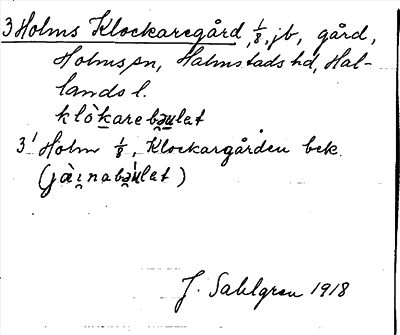 3 Holms Klockaregård, 1/8, jb, gård,
Holms sn, Halmstads hd, Hal-
lands l.
klò̱kareb
3¹ Holm 1/8, Klockargården bek.
J. Sahlgren 1918